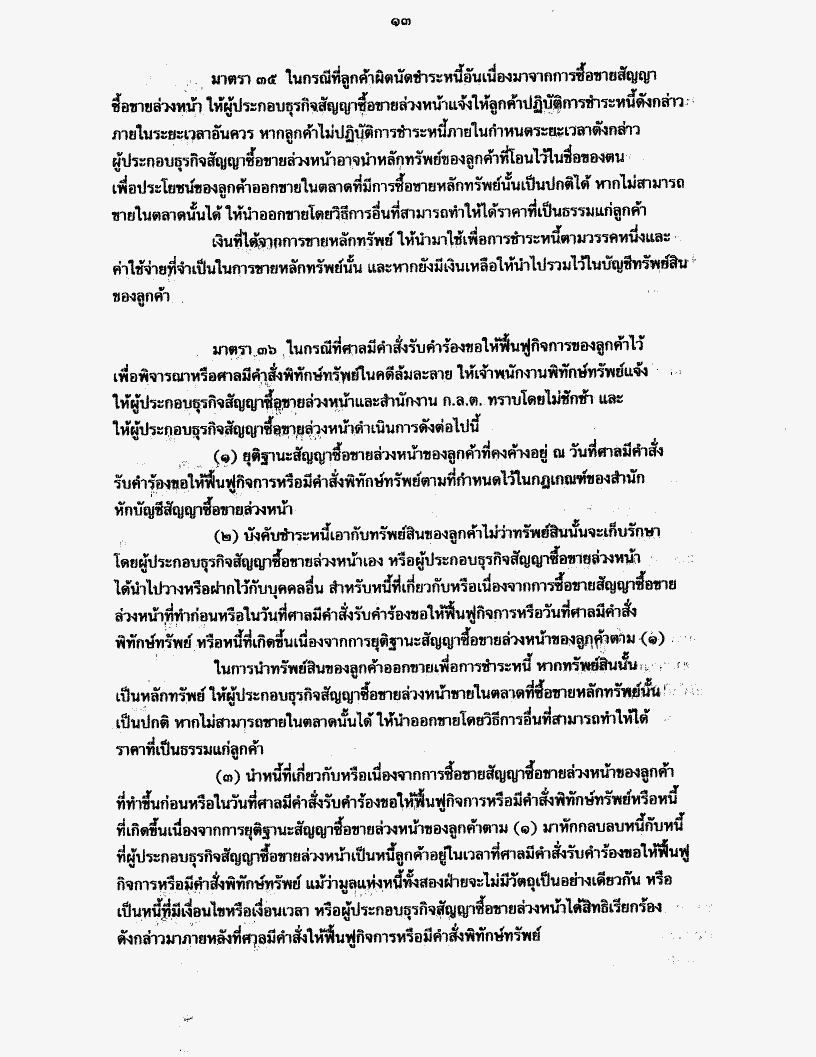 ๑๓
มาตรา ๓๕ ในกรณีที่ลูกค้าผิดนัดชำระหนี้อันเนื่องมาจากการซื้อขายสัญญา
ซื้อขายล่วงหน้า ให้ผู้ประกอบธุรกิจสัญญาซื้อขายล่วงหน้าแจ้งให้ลูกค้าปฏิบัติการชำระหนี้ดังกล่าว
ภายในระยะเวลาอันควร หากลูกค้าไม่ปฏิบัติการชำระหนี้ภายในกำหนดระยะเวลาดังกล่าว
ผู้ประกอบธุรกิจสัญญาซื้อขายล่วงหน้าอาจนำหลักทรัพย์ของลูกค้าที่โอนไว้ในชื่อของตน
เพื่อประโยชน์ของลูกค้าออกขายในตลาดที่มีการซื้อขายหลักทรัพย์นั้นเป็นปกติได้ หากไม่สามารถ
ขายในตลาดนั้นได้ ให้นำออกขายโดยวิธีการอื่นที่สามารถทำให้ได้ราคาที่เป็นธรรมแก่ลูกค้า
เงินที่ได้จากการขายหลักทรัพย์ ให้นำมาใช้เพื่อการชำระหนี้ตามวรรคหนึ่งและ
ค่าใช้จ่ายที่จำเป็นในการขายหลักทรัพย์นั้น และหากยังมีเงินเหลือให้นำไปรวมไว้ในบัญชีทรัพย์สิน
ของลูกค้า
มาตรา ๓๖ ในกรณีที่ศาลมีคำสั่งรับคำร้องขอให้ฟื้นฟูกิจการของลูกค้าไว้
เพื่อพิจารณาหรือศาลมีคำสั่งพิทักษ์ทรัพย์ในคดีล้มละลาย ให้เจ้าพนักงานพิทักษ์ทรัพย์แจ้ง
ให้ผู้ประกอบธุรกิจสัญญาซื้อขายล่วงหน้าและสำนักงาน ก.ล.ต. ทราบโดยไม่ชักช้า และ
ให้ผู้ประกอบธุรกิจสัญญาซื้อขายล่วงหน้าดำเนินการดังต่อไปนี้
(๑) ยุติฐานะสัญญาซื้อขายล่วงหน้าของลูกค้าที่คงค้างอยู่ ณ วันที่ศาลมีคำสั่ง
รับคำร้องขอให้ฟื้นฟูกิจการหรือมีคำสั่งพิทักษ์ทรัพย์ตามที่กำหนดไว้ในกฎเกณฑ์ของสำนัก
หักบัญชีสัญญาซื้อขายล่วงหน้า
(๒) บังคับชำระหนี้เอากับทรัพย์สินของลูกค้าไม่ว่าทรัพย์สินนั้นจะเก็บรักษา
โดยผู้ประกอบธุรกิจสัญญาซื้อขายล่วงหน้าเอง หรือผู้ประกอบธุรกิจสัญญาซื้อขายล่วงหน้า
ได้นำไปวางหรือฝากไว้กับบุคคลอื่น สำหรับหนี้ที่เกี่ยวกับหรือเนื่องจากการซื้อขายสัญญาซื้อขาย
ล่วงหน้าที่ทำก่อนหรือในวันที่ศาลมีคำสั่งรับคำร้องขอให้ฟื้นฟูกิจการหรือวันที่ศาลมีคำสั่ง
พิทักษ์ทรัพย์ หรือหนี้ที่เกิดขึ้นเนื่องจากการยุติฐานะสัญญาซื้อขายล่วงหน้าของลูกค้าตาม (๑)
ในการนำทรัพย์สินของลูกค้าออกขายเพื่อการชำระหนี้ หากทรัพย์สินนั้น
เป็นหลักทรัพย์ ให้ผู้ประกอบธุรกิจสัญญาซื้อขายล่วงหน้าขายในตลาดที่ซื้อขายหลักทรัพย์นั้น
เป็นปกติ หากไม่สามารถขายในตลาดนั้นได้ ให้นำออกขายโดยวิธีการอื่นที่สามารถทำให้ได้
ราคาที่เป็นธรรมแก่ลูกค้า
(๓) นำหนี้ที่เกี่ยวกับหรือเนื่องจากการซื้อขายสัญญาซื้อขายล่วงหน้าของลูกค้า
ที่ทำขึ้นก่อนหรือในวันที่ศาลมีคำสั่งรับคำร้องขอให้ฟื้นฟูกิจการหรือมีคำสั่งพิทักษ์ทรัพย์หรือหนี้
ที่เกิดขึ้นเนื่องจากการยุติฐานะสัญญาซื้อขายล่วงหน้าของลูกค้าตาม (๑) มาหักกลบลบหนี้กับหนี้
ที่ผู้ประกอบธุรกิจสัญญาซื้อขายล่วงหน้าเป็นหนี้ลูกค้าอยู่ในเวลาที่ศาลมีคำสั่งรับคำร้องขอให้ฟื้นฟู
กิจการหรือมีคำสั่งพิทักษ์ทรัพย์ แม้ว่ามูลแห่งหนี้ทั้งสองฝ่ายจะไม่มีวัตถุเป็นอย่างเดียวกัน หรือ
เป็นหนี้ที่มีเงื่อนไขหรือเงื่อนเวลา หรือผู้ประกอบธุรกิจสัญญาซื้อขายล่วงหน้าได้สิทธิเรียกร้อง
ดังกล่าวมาภายหลังที่ศาลมีคำสั่งให้ฟื้นฟูกิจการหรือมีคำสั่งพิทักษ์ทรัพย์